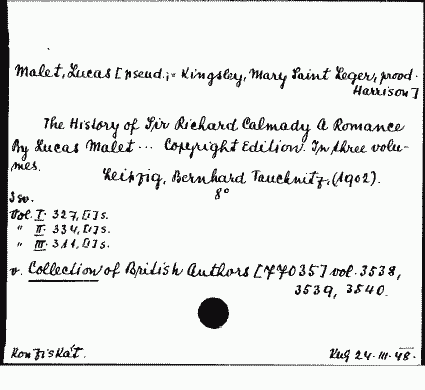 Malet, Lucas [pseud.; = Kingsley, Mary Saint Leger, prood.
Harrison]
The History of Sir Richard Calmady A Romance
By Lucas Malet ... Copyright Edition. In three volu-
mes.
Leipzig, Bernhard Tauchnitz, (1902).
8°
3 sv.
Vol. I. 327, [1] s.
" II. 334, [1] s.
" III. 311, [1] s.
v. Collection of British Authors [77035] vol. 3538,
3539, 3540.
24.III.48.